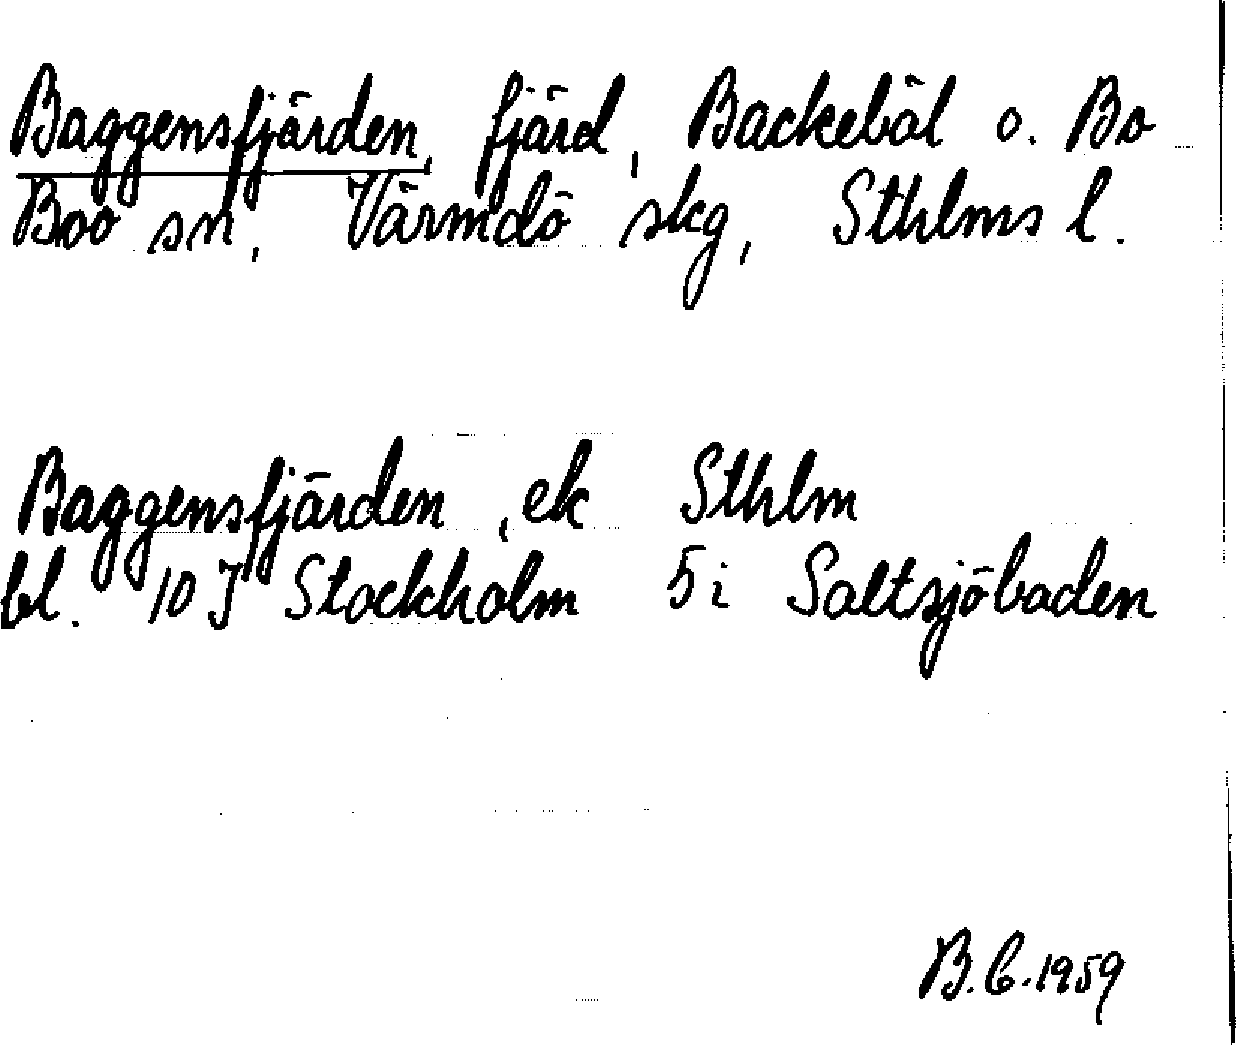 Baggensfjärden, fjärd, Backeböl o. Bo
Boo sn, Värmdö skg, Sthlms l.
Baggensfjärden, ek Sthlm
bl. 10 J Stockholm 5i Saltsjöbaden
B.C. 1959